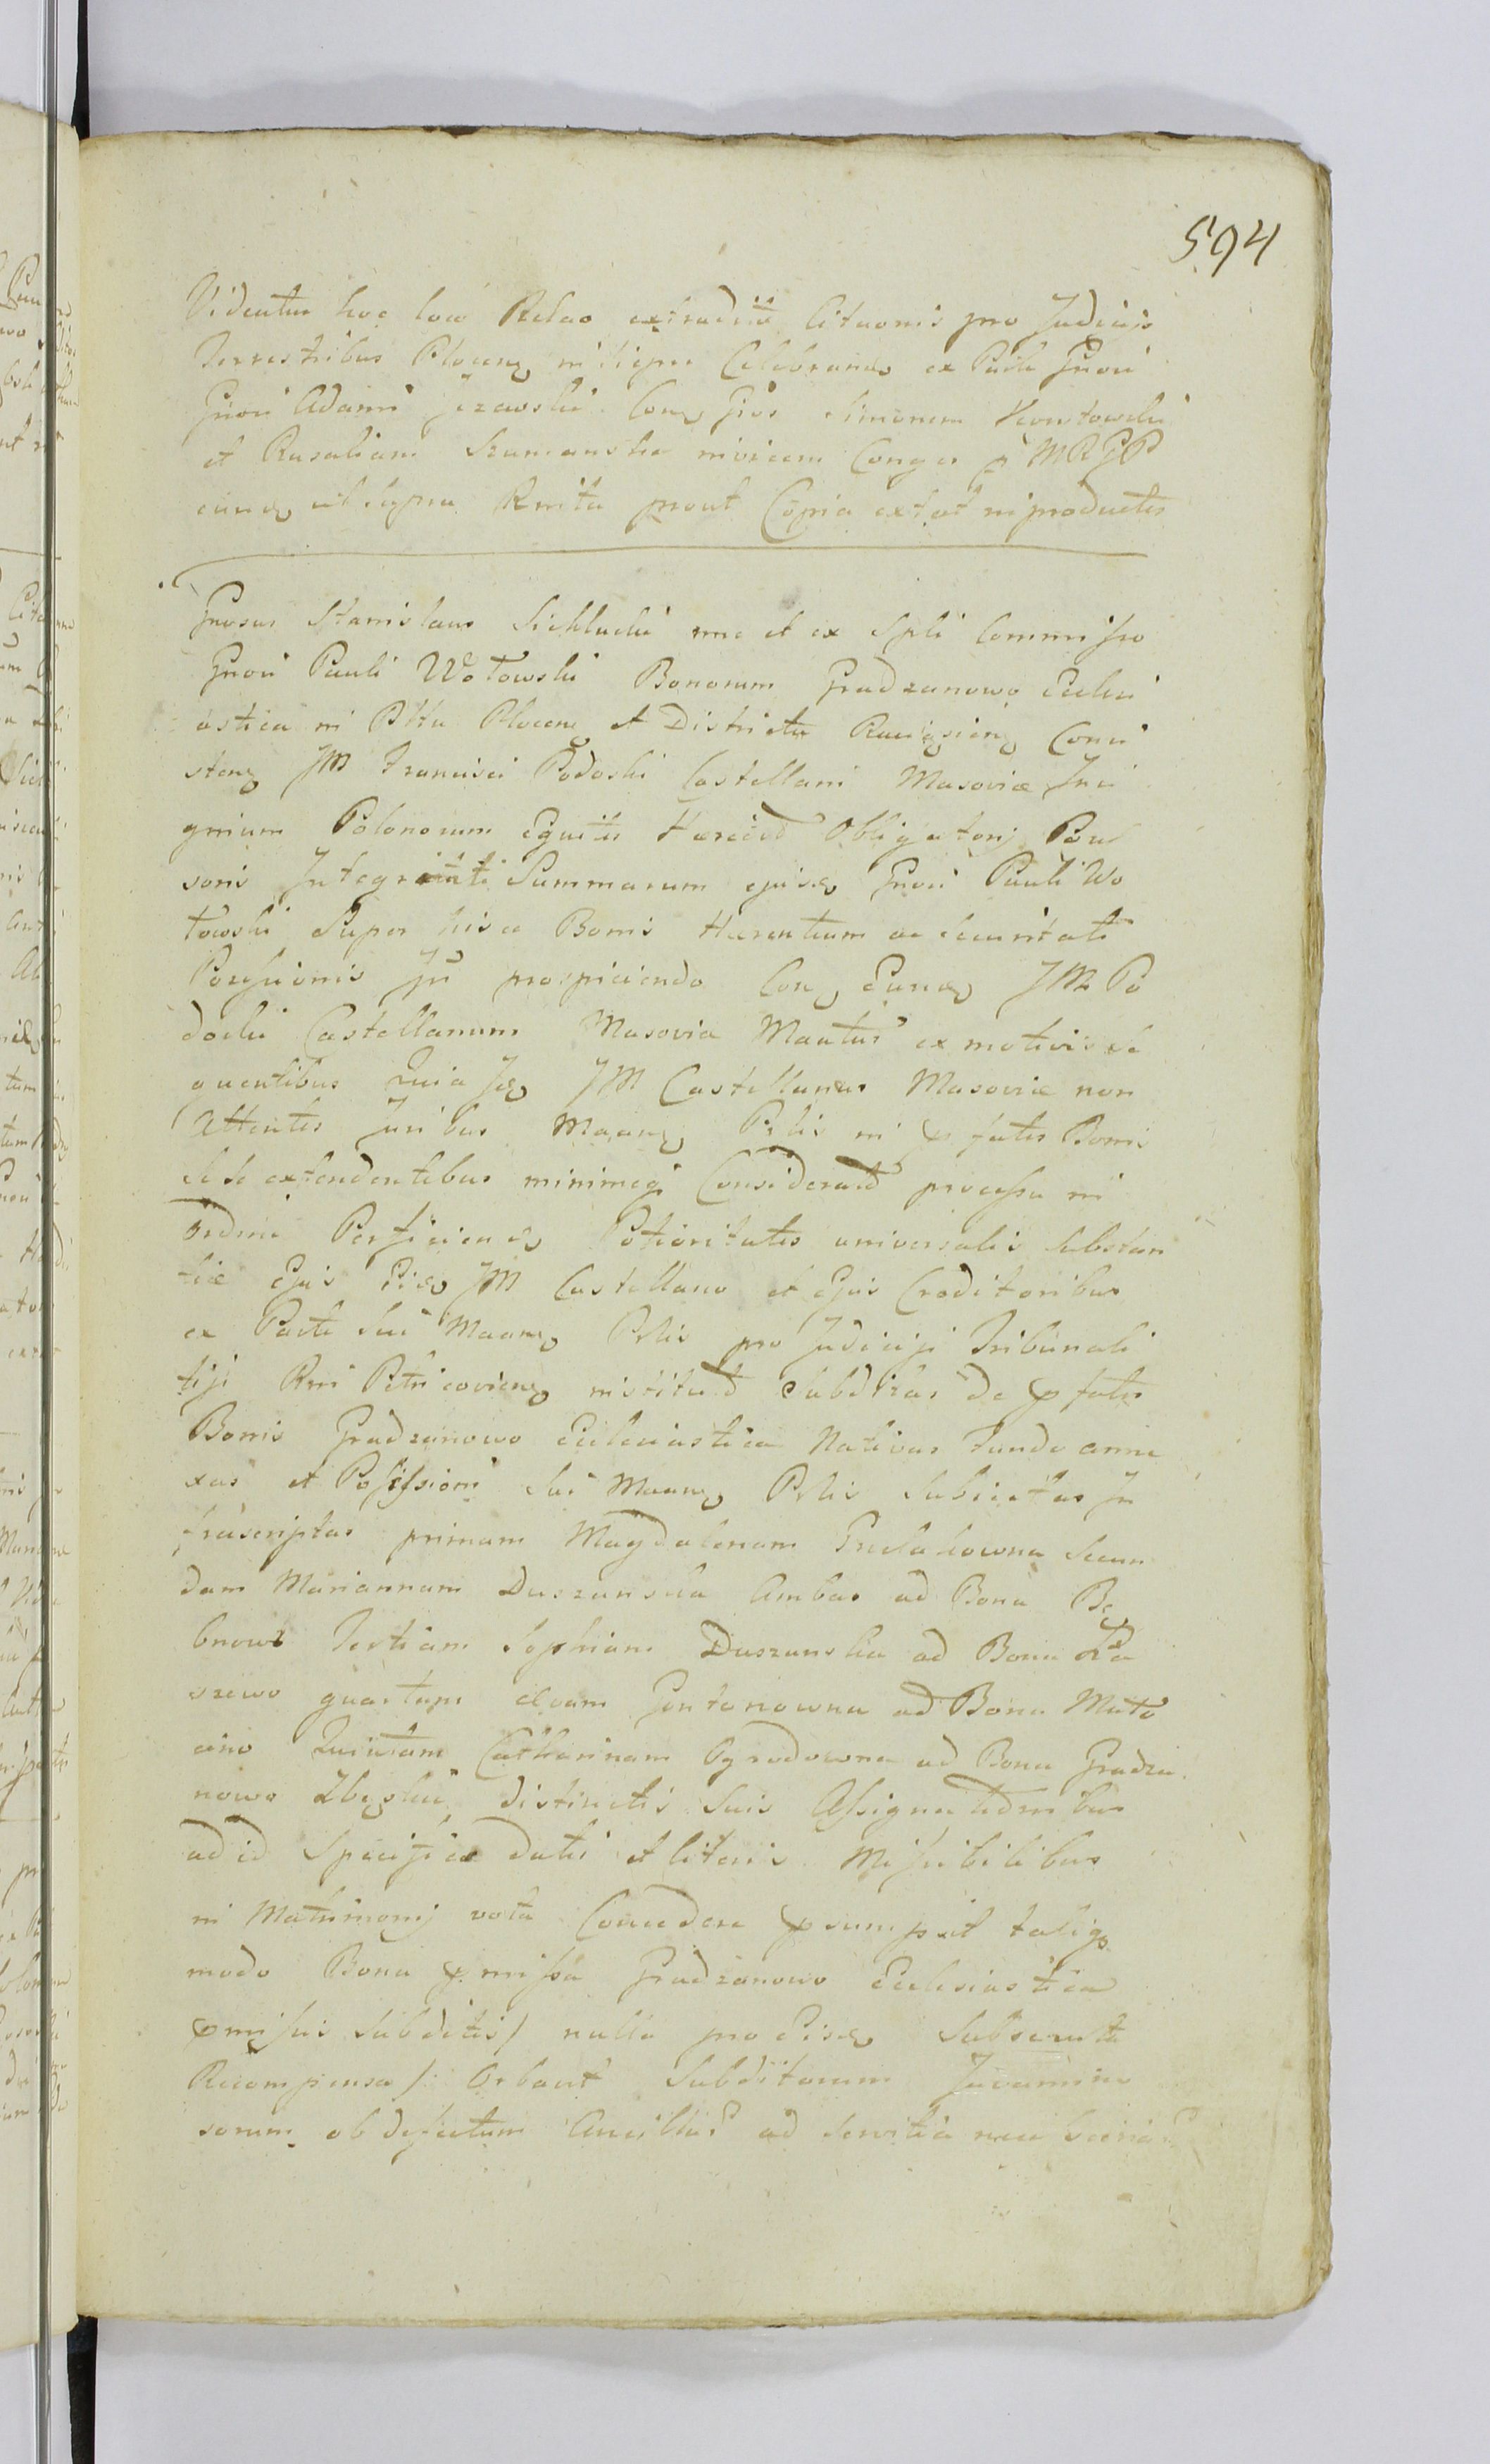 594
Videatur hoc loco Relao extraditæ Citaonis pro Judicijs
Terrestribus Plocen in Siepre Celebrand ex Parte Gnosi
Gnosi Adami Jezewski Con Gsos Simonem Kontowski
et Rosaliam Szumanska invicem Conges p MRGP
eund ut supra Rmita prout Copia extat in productis
Gnosus Stanislaus Sichlucki mne et ex Spli Commisso
Gnosi Pauli Wołowski Bonorum Gradzanowo Eccle
astica in Pttu Plocen et Districtu Raciązien Consi
sten JM Francisci Podoski Castellani Masoviæ Insi
gnium Polonorum Equitis Hæredit Obligatorij Pos
soris Integritati Summarum ejusd Gnosi Pauli Wo
łowski Super hisce Bonis Hærentium ac Securitati
Possessionis Jur prospiciendo Con Eund JM Po
doski Castellanum Masoviæ Mantus ex motivis se
quentibus Quia Id JM Castellanus Masoviæ non
Attentis Juribus Maan Prtis in pfatis Bonis
se se extendentibus minimeq Considerato processu in
ordine Perficien Potioritatis universalis Substan
tiæ Ejus Eid JM Castellano et Ejus Creditoribus
ex Parte Sui Maan Prtis pro Judicijs Tribunali
tijs Rni Petricovien institut Subditas de pfatis
Bonis Gradzanowo Ecclesiastica Nativas Fundo anne
xas et Possessioni Sui Maan Prtis Subiectas In
frascriptas primam Magdalenam Secun
dam Mariannam Duszanska Ambas ad Bona Bę
bnowo Tertiam Sophiam Duszanska ad Bona
szewo quartam Evam Gontonowna ad Bona Mało
cino Quintam Catharinam Ogrodowna ad Bona Gradza
nowo Zbęskie distinctis Suis Assignationibus
ad id Specifice datis et literis Missibilibus
in Matrimonij vota Concedere psumpsit taliq
modo Bona pmissa Gradzanowo Ecclesiastica
pmissis Subditis / nulla pro Eisd Subsecuta
Recompensa / Orbavit Subditorum Juvamine
sorum ob defectum Ancillar ad Servitia